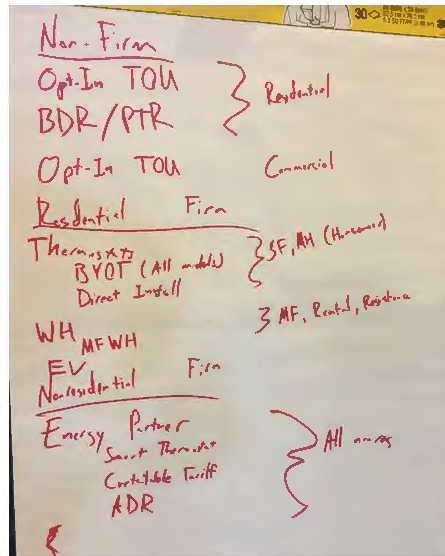 Non-Firm
Opt-In TOU
BDR/PTR
Residential
Opt-In TOU Commercial
Residential Firm
Thermostats
BYOT (All models)
Direct Install
SF, MH (Homeowner)
MF, Rental, Resistance
WH MFWH
EV
Nonresidential Firm
Energy Partner
Smart Thermostat
Curtailable Tariff
ADR
All